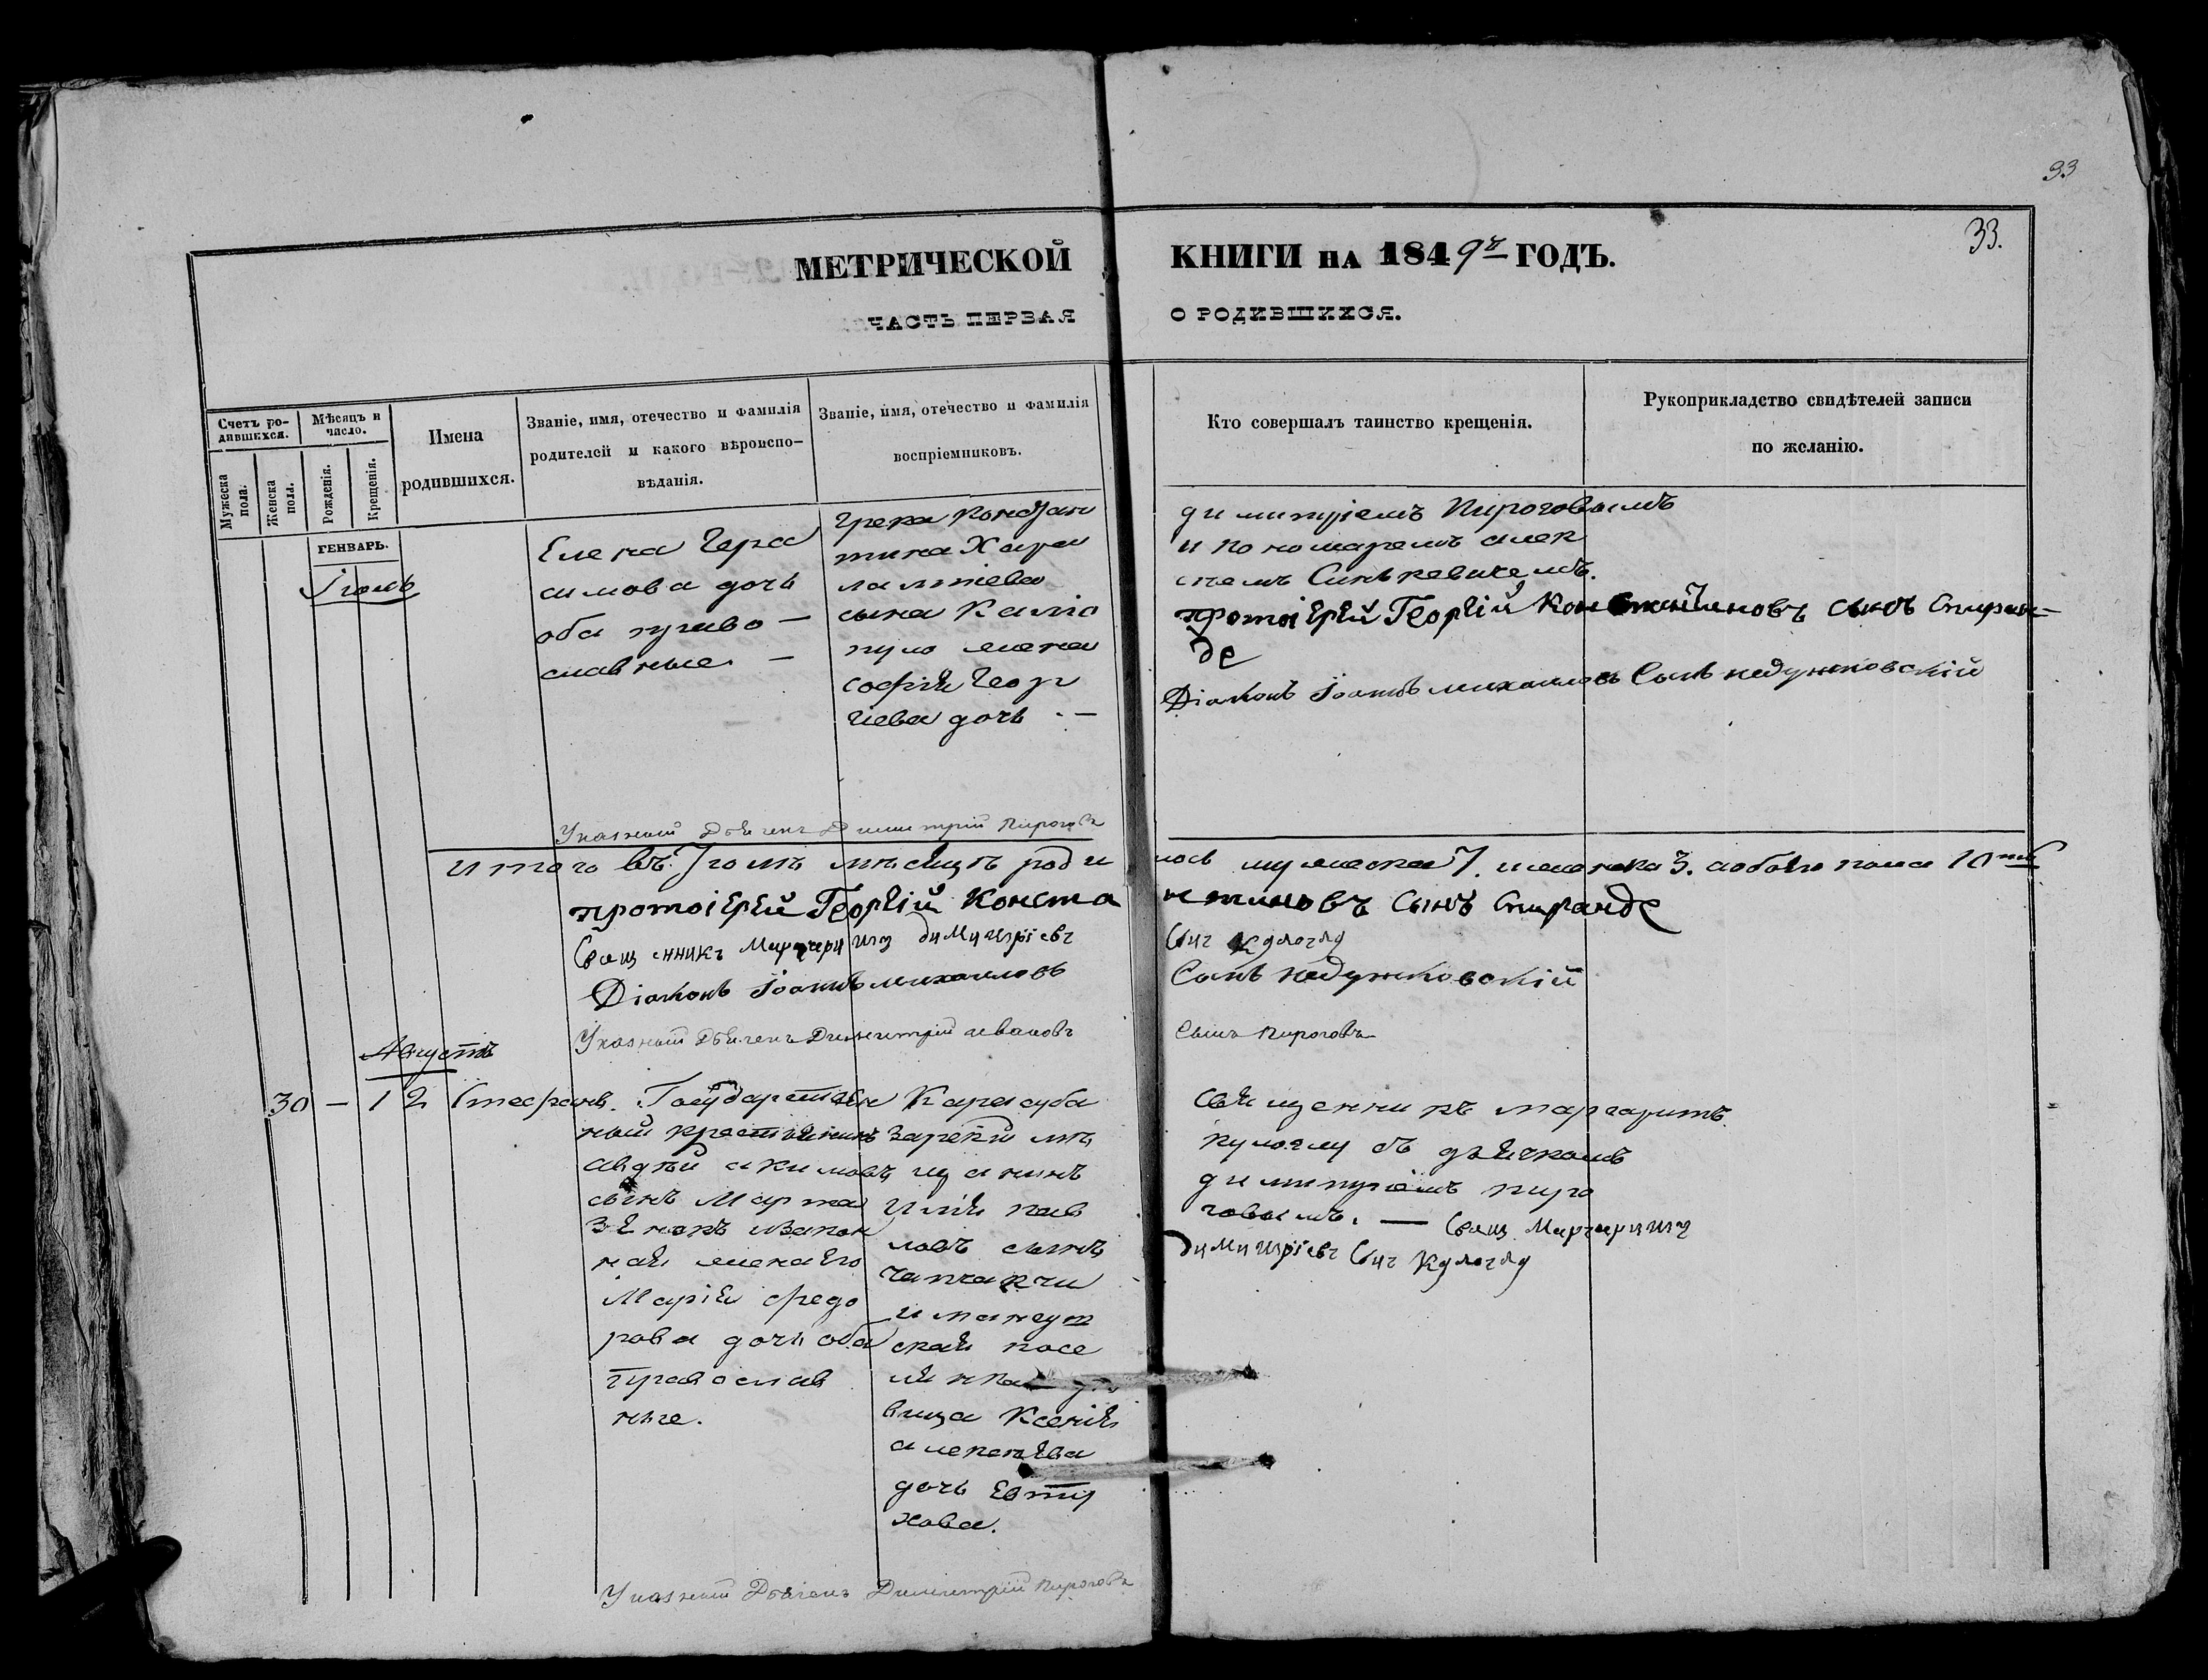 93
33.
МЕТРИЧЕСКОЙ КНИГИ НА 1849й ГОДЪ.
ЧАСТЬ ПЕРВАЯ О РОДИВШИХСЯ.
Счетъ родившихся.
Мужеска пола.
Женска пола.
Мѣсяцъ и число.
Рожденія.
Крещенія.
Имена
родившихся.
Званіе, имя, отечество и фамилія
родителей и какого вѣроиспо-
вѣданія.
Званіе, имя, отечество и фамилія
воспріемниковъ.
Кто совершалъ таинство крещенія.
Рукоприкладство свидѣтелей записи
по желанію.
ГЕНВАРЬ.
Іюль
Елена Гера
симова дочь
оба право —
славные. —
грека Констан
тина Хара
лампіева
сына
жена
софія Геор
гіева дочь . —
димитріемъ Пироговымъ
и пономаремъ алек
сѣемъ Синькевичемъ.
протоіерей Георгій Константиновъ сынъ Спиран-
де
Діаконъ Іоаннъ михаиловъ Сынъ недужковскій
Указный Дьячекъ Димитрій Пироговъ
итого въ Іюлѣ мѣсяцѣ роди лось мужеска 7. женска 3. а обоего пола 10ть
протоіерей Георгій Конста нтиновъ Сынъ Спиранде
Священникъ Маргаритъ Димитріевъ Сынъ Кулоглу
Діаконъ Іоаннъ михаиловъ Сынъ недужковскій
Указный Дьячекъ Димитрій ивановъ Сынъ Пироговъ
Августъ
30 — 1 2 Стефанъ.
Государствен
ный крестьянинъ
авдѣй акимовъ
сынъ
законная жена его
Марія федо
рова дочь оба
Православ
ные.
Карасуба
зарскій мѣ
щанинъ
Илія пав
ловъ сынъ
Чапчакчи
и мангуш
ская посе
лянка
вица Ксенія
алексѣева
дочь Евту
хова.
Священникъ маргаритъ
кулоглу съ дьячкомъ
димитріемъ пиро
говымъ. — Свящ. Маргаритъ
Димитріевъ Сынъ Кулоглу
Указный Дьячекъ Димитрій Пироговъ